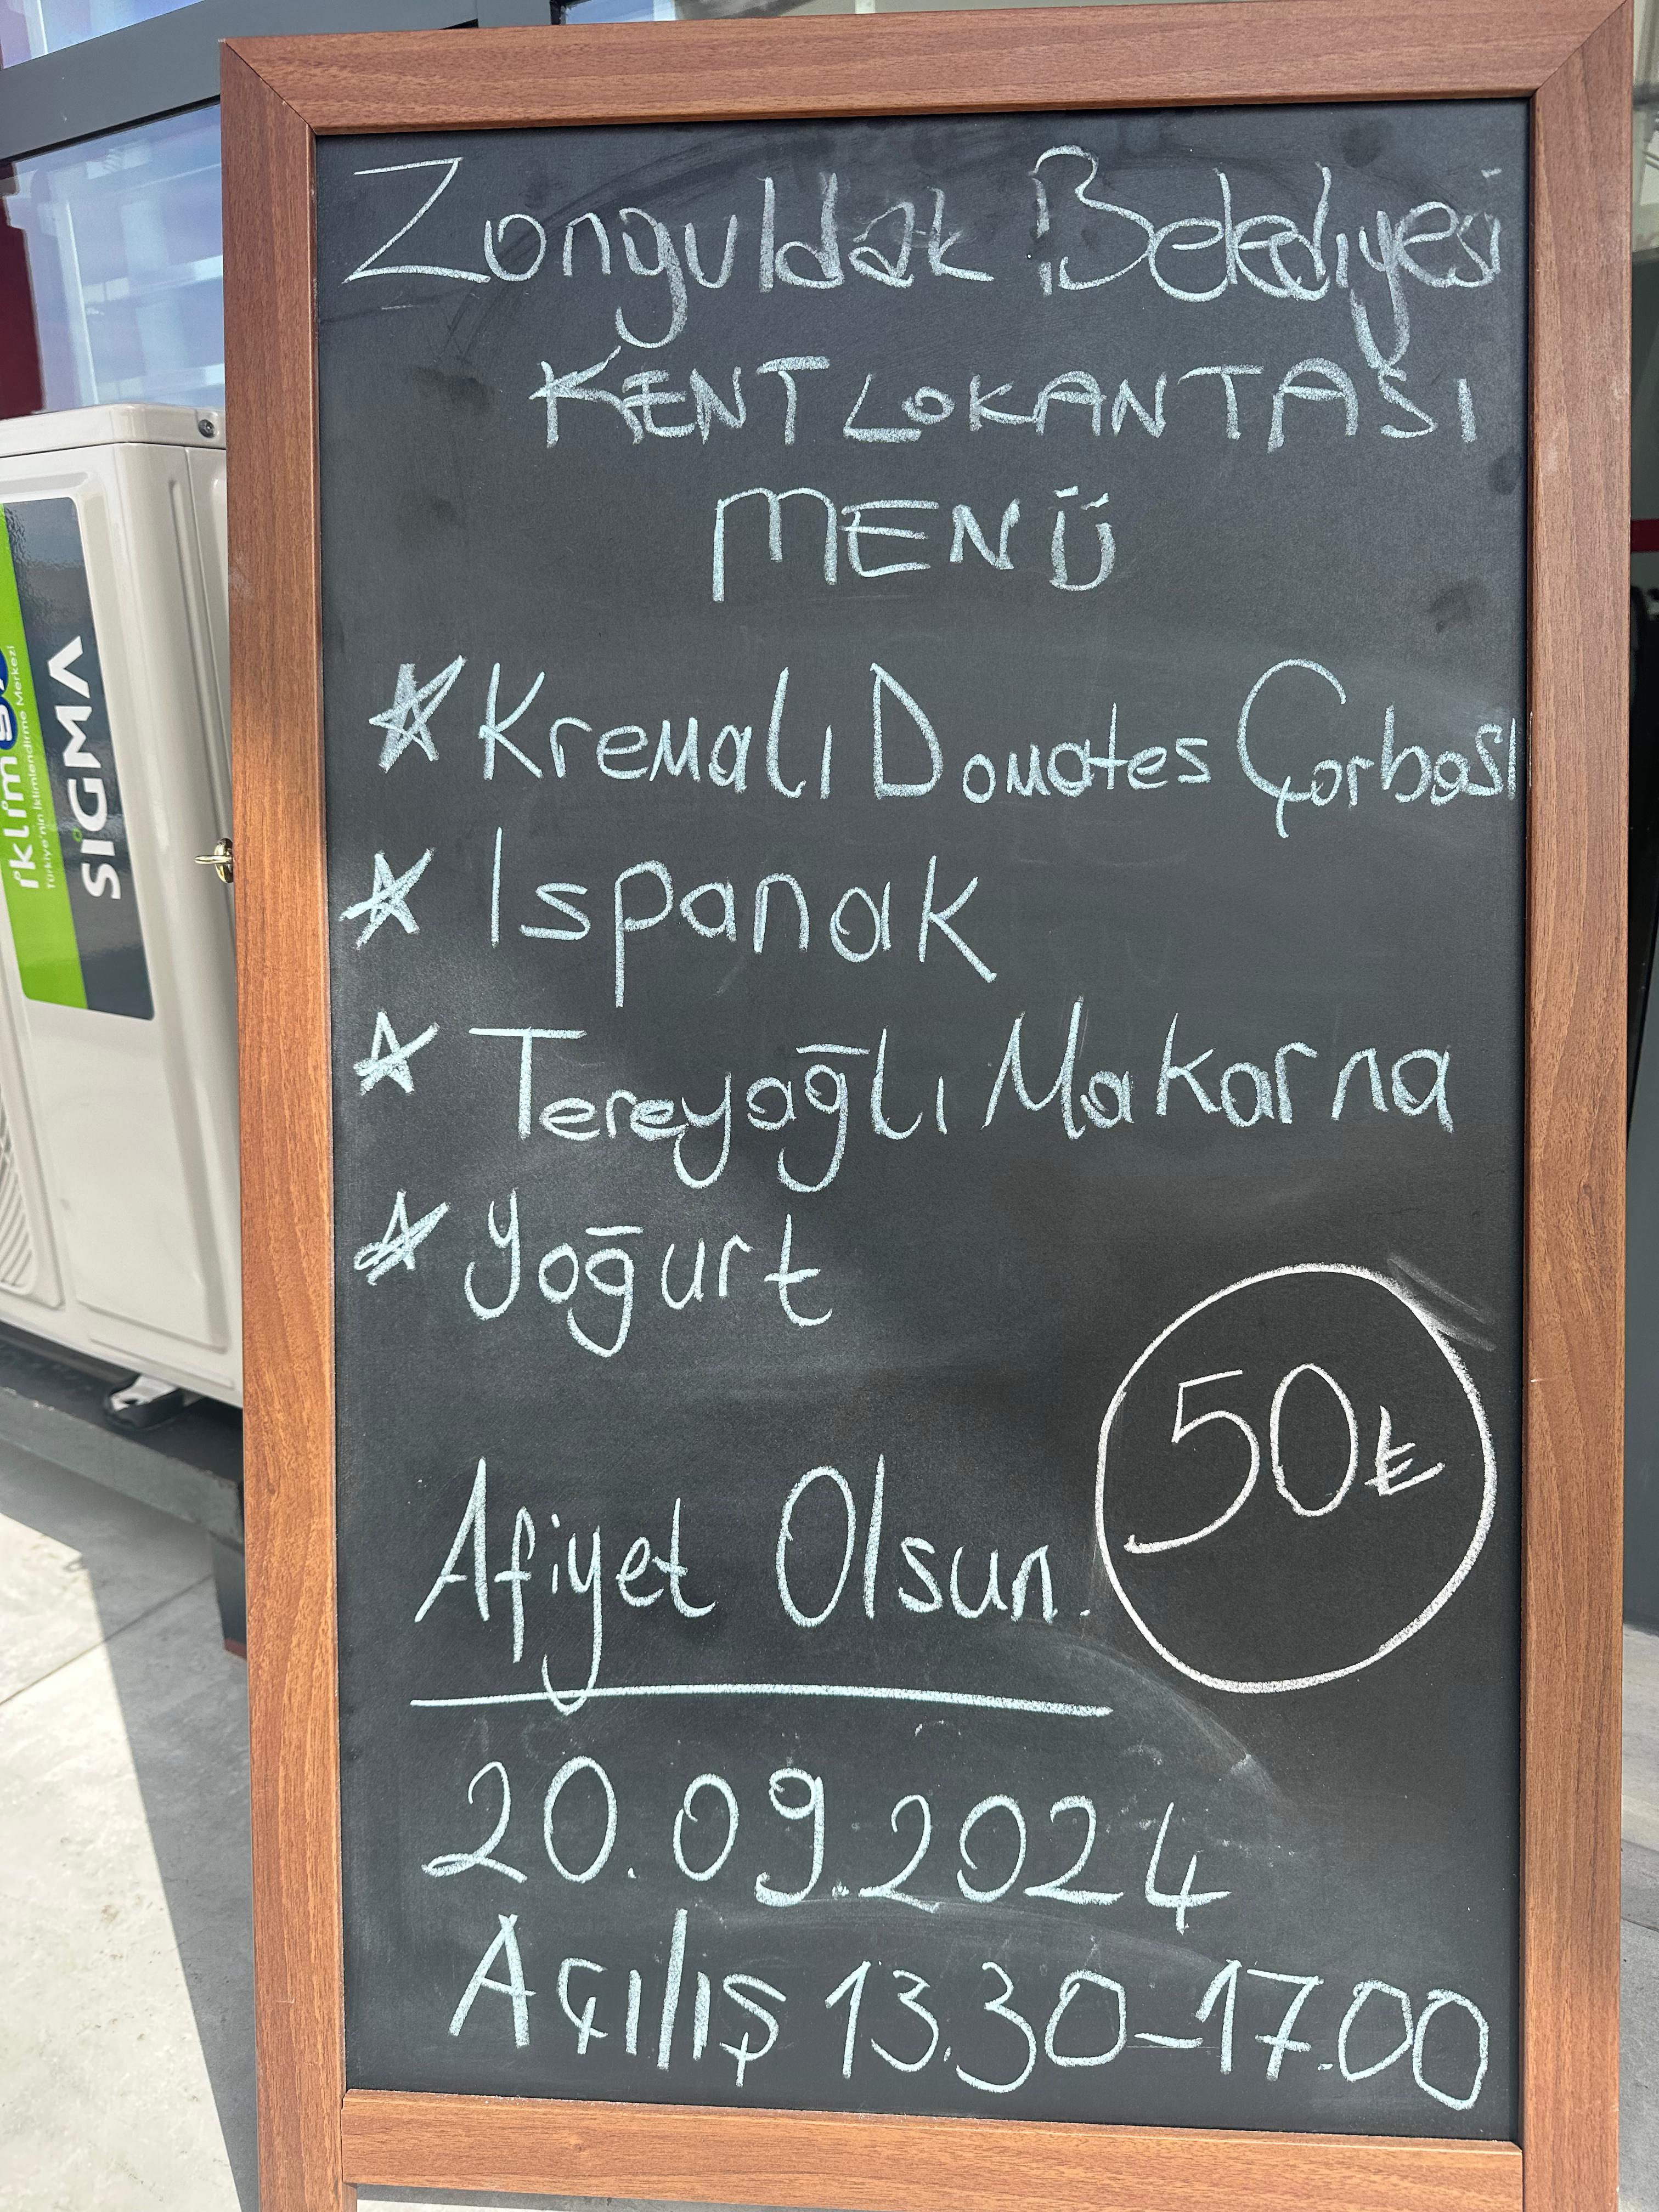 Zonguldak Belediyesi
KENT LOKANTASI
MENÜ
Kremalı Domates Çorbası
Ispanak
Tereyağlı Makarna
Yoğurt
50₺
Afiyet Olsun.
20.09.2024
Açılış 13.30-17.00
SİGMA
Türkiye'nin İklimlendirme Merkezi